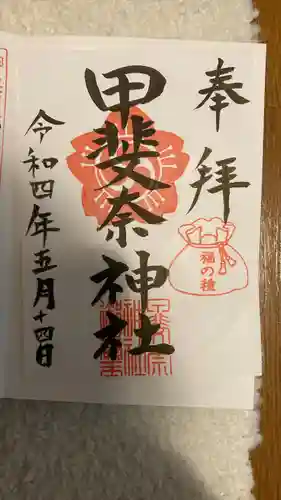 奉拝
甲斐奈神社
福の種
令和四年五月十四日